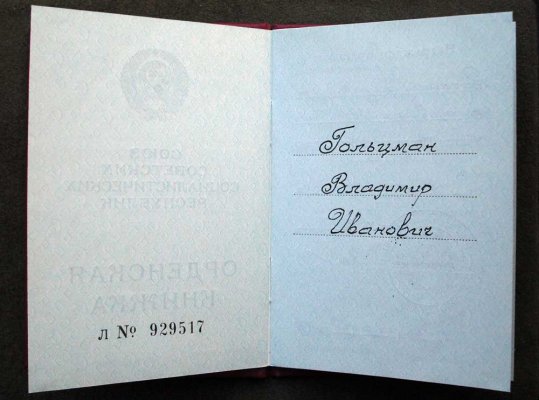 СОЮЗ
СОВЕТСКИХ
СОЦИАЛИСТИЧЕСКИХ
РЕСПУБЛИК
ОРДЕНСКАЯ
КНИЖКА
Л № 929517
Гольцман
Владимир
Иванович